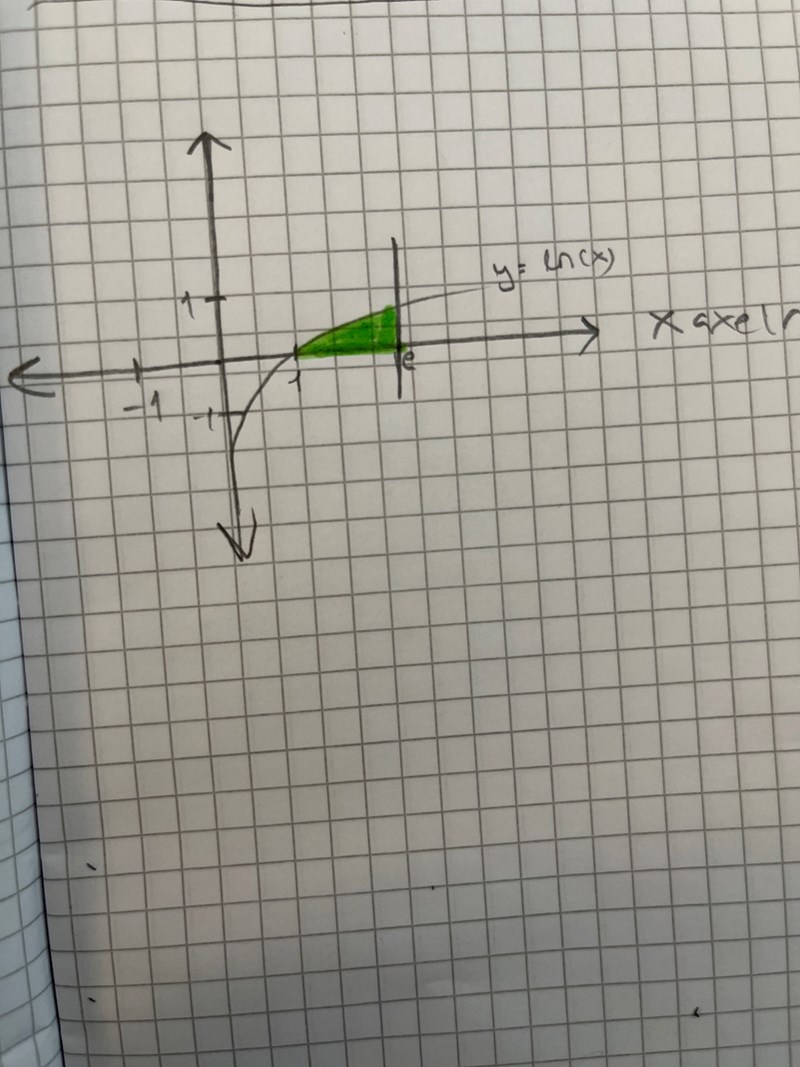 y= ln(x)
1
x axeln
1
e
-1
-1